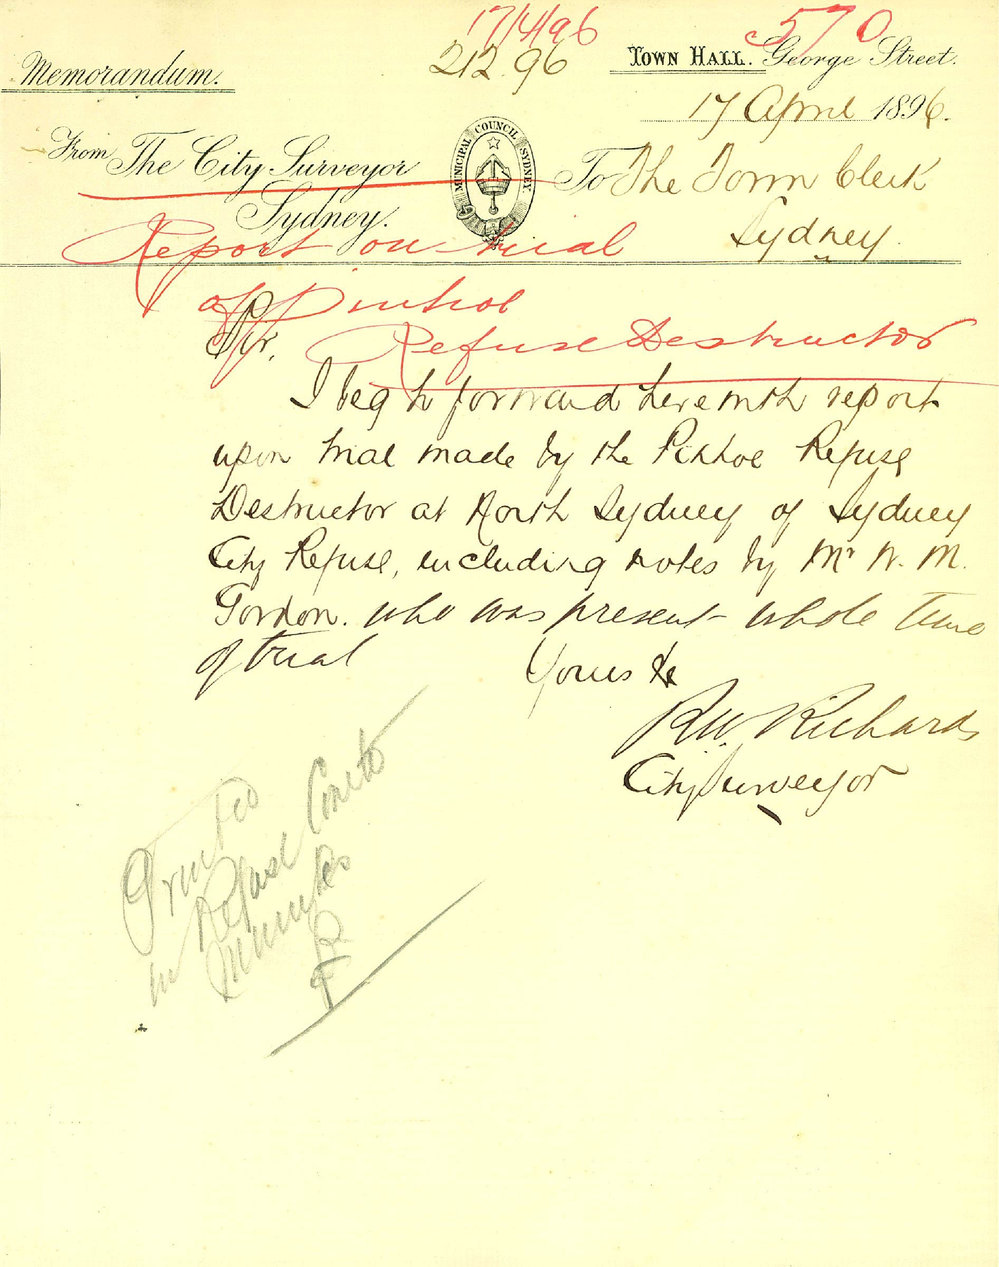 17/4/96
570
212.96
Memorandum.
TOWN HALL. George Street.
17 April 1896.
From The City Surveyor
Sydney.
MUNICIPAL COUNCIL SYDNEY
To The Town Clerk
Sydney.
Report on trial
of
Refuse Destructor
Sir,
I beg to forward herewith report
upon trial made by the Refuse
Destructor at North Sydney of Sydney
City Refuse, including notes by Mr W. M.
Gordon. who was present whole time
of trial
Yours &c
R W Richards
City Surveyor
Printed
in Refuse
Minutes